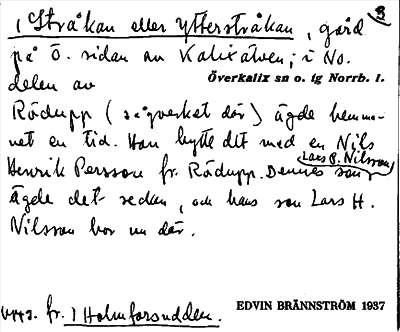 3
i Stråkan eller Ytterstråkan, gård
på ö. sidan av Kalixälven; i No.
delen av Överkalix sn o. tg Norrb. l.
Rödupp (sågverket där) ägde hemma-
net en tid. Han bytte det med en Nils
Henrik Persson fr. Rödupp. Dennes son
Lars P. Nilsson
ägde det sedan, och hans son Lars H.
Nilsson bor nu där.
uppg. fr. i Holmforsudden.
EDVIN BRÄNNSTRÖM 1937